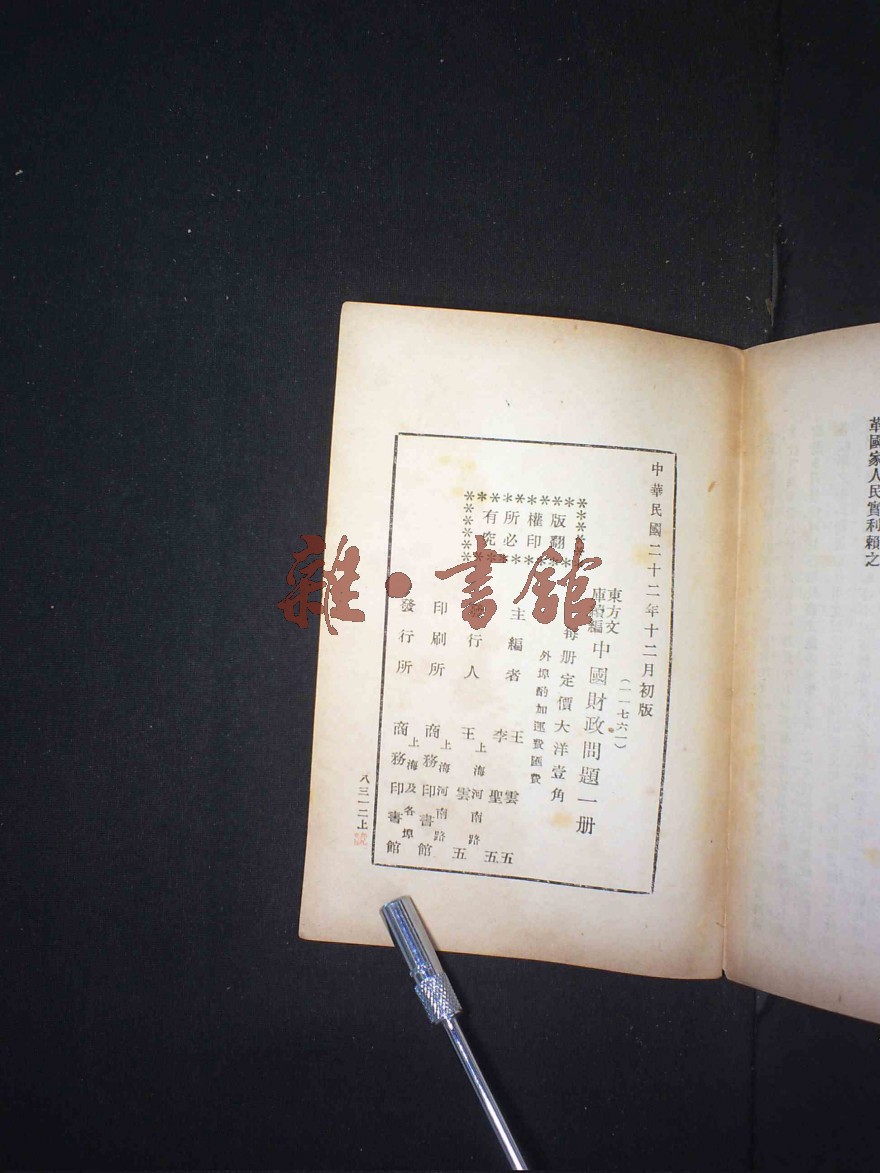 中華民國二十二年十二月初版
(一一七六一)
東方文
庫續編
中國財政問題一册
每册定價大洋壹角
外埠酌加運費匯費
版權所有
翻印必究
主編者
王雲五
李聖五
發行人
上海河南路
王雲五
印刷所
上海河南路
商務印書館
發行所
上海及各埠
商務印書館
八三一二上
華國家人民實利賴之
雜·書館